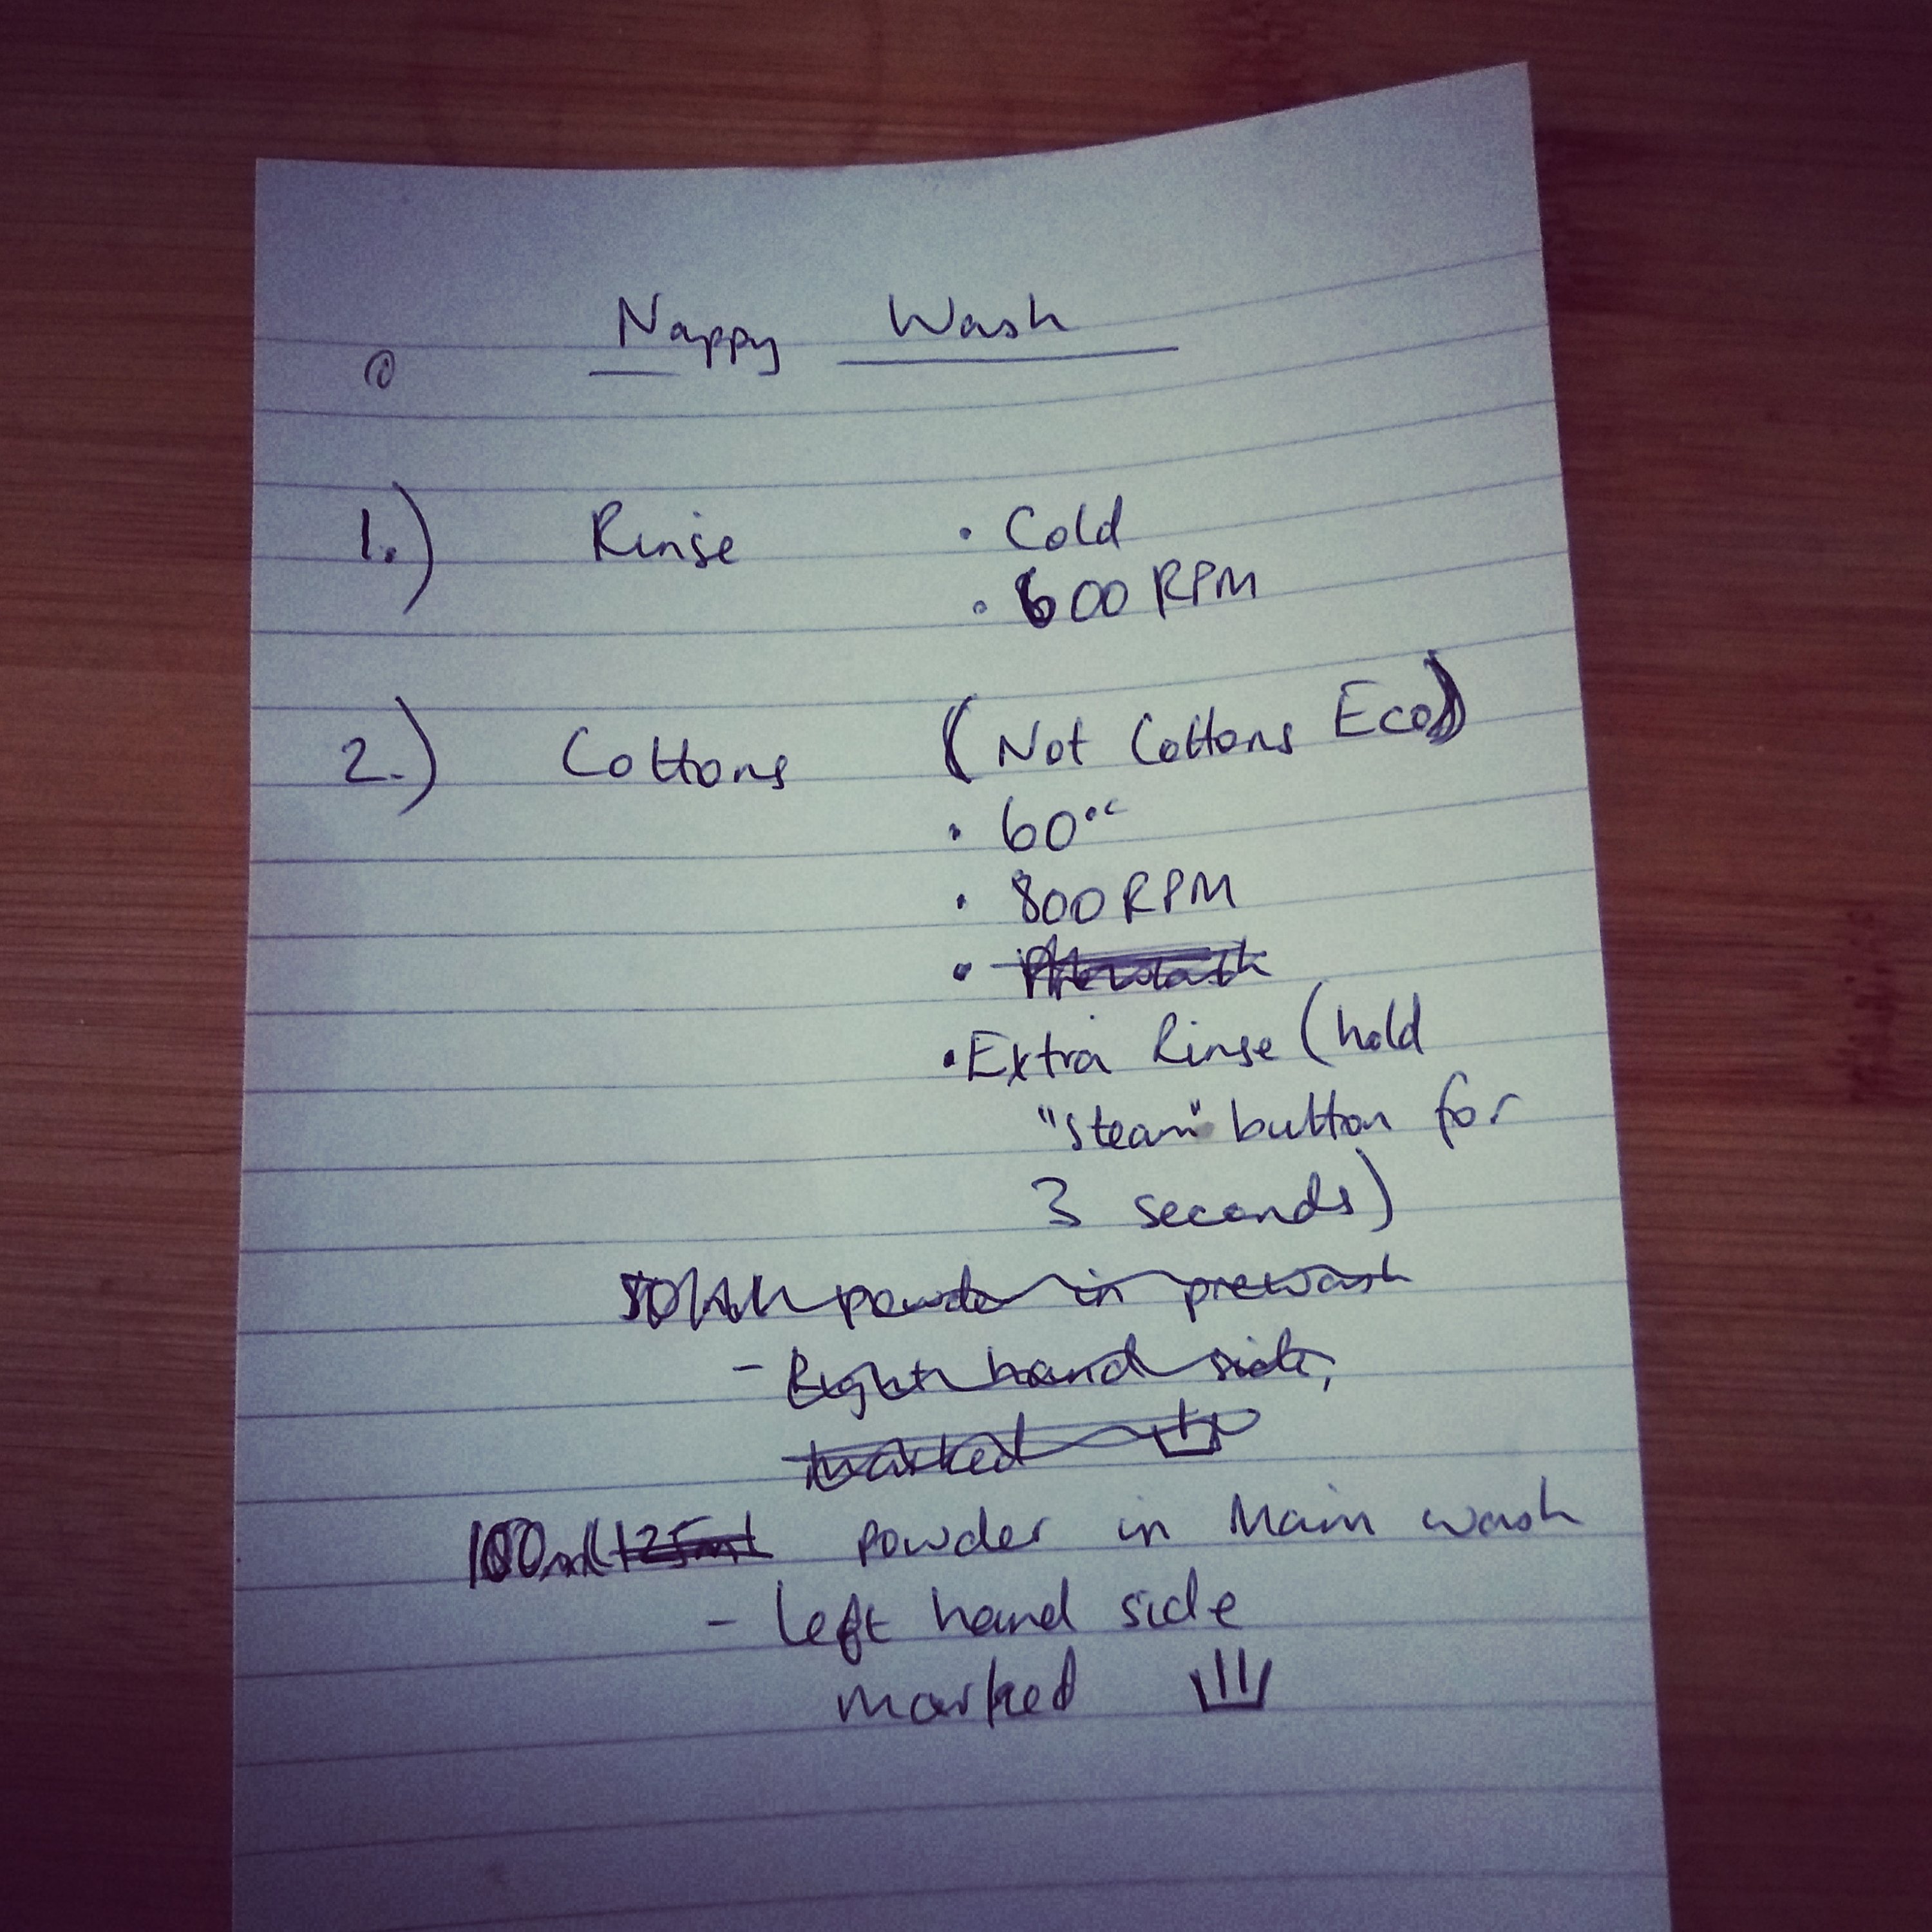 Nappy Wash
1.) Rinse • Cold
• 600 RPM
2.) Cottons (Not Cottons Eco)
• 60°C
• 800 RPM
• Prewash
• Extra Rinse (hold
"steam" button for
3 seconds)
powder in prewash
- Right hand side,
marked
100ml 125ml powder in Main wash
- Left hand side
marked